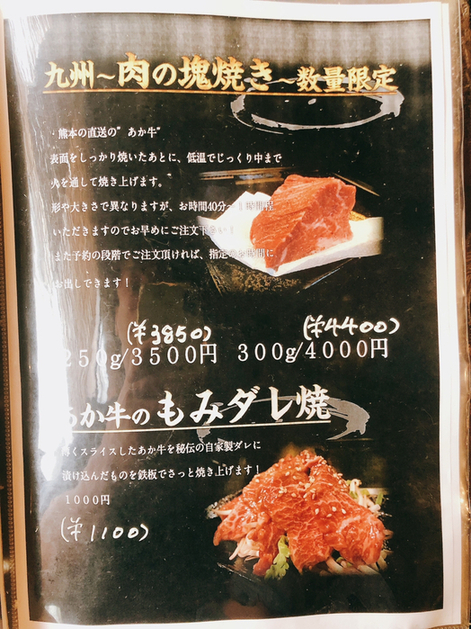 九州～肉の塊焼き～数量限定
・熊本の直送の"あか牛"
表面をしっかり焼いたあとに、低温でじっくり中まで
火を通して焼き上げます。
形や大きさで異なりますが、お時間40分～1時間程
いただきますのでお早めにご注文下さい！
また予約の段階でご注文頂ければ、指定のお時間に
お出しできます！
(¥3850) (¥4400)
250g/3500円 300g/4000円
あか牛のもみダレ焼
薄くスライスしたあか牛を秘伝の自家製ダレに
漬け込んだものを鉄板でさっと焼き上げます！
1000円
(¥1100)